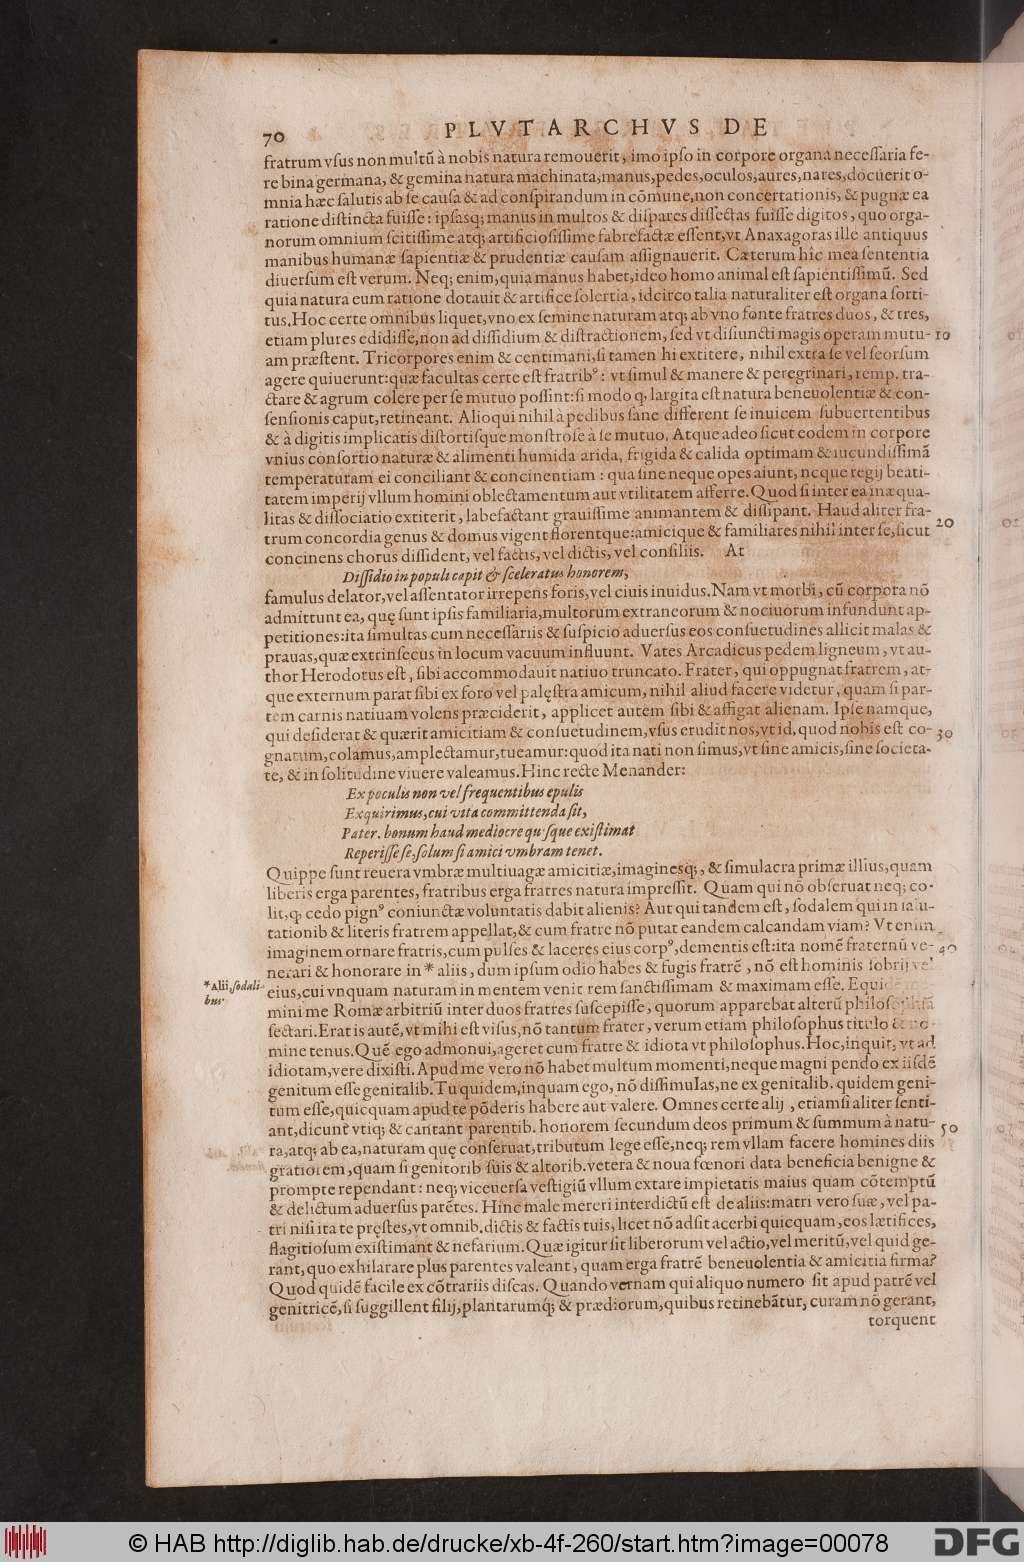 70 PLVTARCHVS DE
fratrum vsus non multũ à nobis natura remouerit, imo ipso in corpore organa necessaria fe-
re bina germana, & gemina natura machinata, manus, pedes, oculos, aures, nares, docuerit o-
mnia hæc salutis ab se causa & ad conspirandum in cõmune, non concertationis, & pugnæ ea
ratione distincta fuisse: ipsasq; manus in multos & dispares dissectas fuisse digitos, quo orga-
norum omnium scitissime atq; artificiosissime fabrefactæ essent, vt Anaxagoras ille antiquus
manibus humanæ sapientiæ & prudentiæ causam assignauerit. Cæterum hîc mea sententia
diuersum est verum. Neq; enim, quia manus habet, ideo homo animal est sapientissimũ. Sed
quia natura eum ratione dotauit & artifice solertia, idcirco talia naturaliter est organa sorti-
tus. Hoc certe omnibus liquet, vno ex semine naturam atq; ab vno fonte fratres duos, & tres,
etiam plures edidisse, non ad dissidium & distractionem, sed vt disiuncti magis operam mutu- 10
am præstent. Tricorpores enim & centimani, si tamen hi extitere, nihil extra se vel seorsum
agere quiuerunt: quæ facultas certe est fratribꝰ: vt simul & manere & peregrinari, remp. tra-
ctare & agrum colere per se mutuo possint: si modo q, largita est natura beneuolentiæ & con-
sensionis caput, retineant. Alioqui nihil à pedibus sane different se inuicem subuertentibus
& à digitis implicatis distortisque monstrose à se mutuo. Atque adeo sicut eodem in corpore
vnius consortio naturæ & alimenti humida arida, frigida & calida optimam & iucundissimã
temperaturam ei conciliant & concinentiam: qua sine neque opes aiunt, neque regij beati-
tatem imperij vllum homini oblectamentum aut vtilitatem afferre. Quod si inter ea inæqua-
litas & dissociatio extiterit, labefactant grauissime animantem & dissipant. Haud aliter fra-
trum concordia genus & domus vigent florentque: amicique & familiares nihil inter se, sicut 20
concinens chorus dissident, vel factis, vel dictis, vel consiliis. At
Dissidio in populi capit & sceleratus honorem,
famulus delator, vel assentator irrepens foris, vel ciuis inuidus. Nam vt morbi, cũ corpora nõ
admittunt ea, quę sunt ipsis familiaria, multorum extraneorum & nociuorum infundunt ap-
petitiones: ita simultas cum necessariis & suspicio aduersus eos consuetudines allicit malas &
prauas, quæ extrinsecus in locum vacuum influunt. Vates Arcadicus pedem ligneum, vt au-
thor Herodotus est, sibi accommodauit natiuo truncato. Frater, qui oppugnat fratrem, at-
que externum parat sibi ex foro vel palęstra amicum, nihil aliud facere videtur, quam si par-
tem carnis natiuam volens præciderit, applicet autem sibi & affigat alienam. Ipse namque,
qui desiderat & quærit amicitiam & consuetudinem, vsus erudit nos, vt id, quod nobis est co- 30
gnatum, colamus, amplectamur, tueamur: quod ita nati non simus, vt sine amicis, sine societa-
te, & in solitudine viuere valeamus. Hinc recte Menander:
Ex poculis non vel frequentibus epulis
Exquirimus, cui vita committenda sit,
Pater. bonum haud mediocre quisque existimat
Reperisse se, solum si amici vmbram tenet.
Quippe sunt reuera vmbræ multiuagæ amicitiæ, imaginesq;, & simulacra primæ illius, quam
liberis erga parentes, fratribus erga fratres natura impressit. Quam qui nõ obseruat neq; co-
lit, q; cedo pignꝰ coniunctæ voluntatis dabit alienis? Aut qui tandem est, sodalem qui in salu-
tationib & literis fratrem appellat, & cum fratre nõ putat eandem calcandam viam? Vt enim
imaginem ornare fratris, cum pulses & laceres eius corpꝰ, dementis est: ita nomẽ fraternũ ve- 40
nerari & honorare in * aliis, dum ipsum odio habes & fugis fratrẽ, nõ est hominis sobrij vel
*Alii, sodali-
bus
eius, cui vnquam naturam in mentem venit rem sanctissimam & maximam esse. Equidem
mini me Romæ arbitriũ inter duos fratres suscepisse, quorum apparebat alterũ philosophiã
sectari. Erat is autẽ, vt mihi est visus, nõ tantum frater, verum etiam philosophus titulo & no-
mine tenus. Quẽ ego admonui, ageret cum fratre & idiota vt philosophus. Hoc, inquit, vt ad
idiotam, vere dixisti. Apud me vero nõ habet multum momenti, neque magni pendo ex iisdẽ
genitum esse genitalib. Tu quidem, inquam ego, nõ dissimulas, ne ex genitalib. quidem geni-
tum esse, quicquam apud te põderis habere aut valere. Omnes certe alij, etiamsi aliter senti-
ant, dicunt vtiq; & cantant parentib. honorem secundum deos primum & summum à natu- 50
ra, atq; ab ea, naturam quę conseruat, tributum lege esse, neq; rem vllam facere homines diis
gratiorem, quam si genitorib suis & altorib. vetera & noua fœnori data beneficia benigne &
prompte rependant: neq; viceuersa vestigiũ vllum extare impietatis maius quam cõtemptũ
& delictum aduersus parẽtes. Hinc male mereri interdictũ est de aliis: matri vero suæ, vel pa-
tri nisi ita te pręstes, vt omnib. dictis & factis tuis, licet nõ adsit acerbi quicquam, eos lætifices,
flagitiosum existimant & nefarium. Quæ igitur sit liberorum vel actio, vel meritũ, vel quid ge-
rant, quo exhilarare plus parentes valeant, quam erga fratrẽ beneuolentia & amicitia firma?
Quod quidẽ facile ex cõtrariis discas. Quando vernam qui aliquo numero sit apud patrẽ vel
genitricẽ, si suggillent filij, plantarumq́; & prædiorum, quibus retinebãtur, curam nõ gerant,
torquent
© HAB http://diglib.hab.de/drucke/xb-4f-260/start.htm?image=00078
DFG